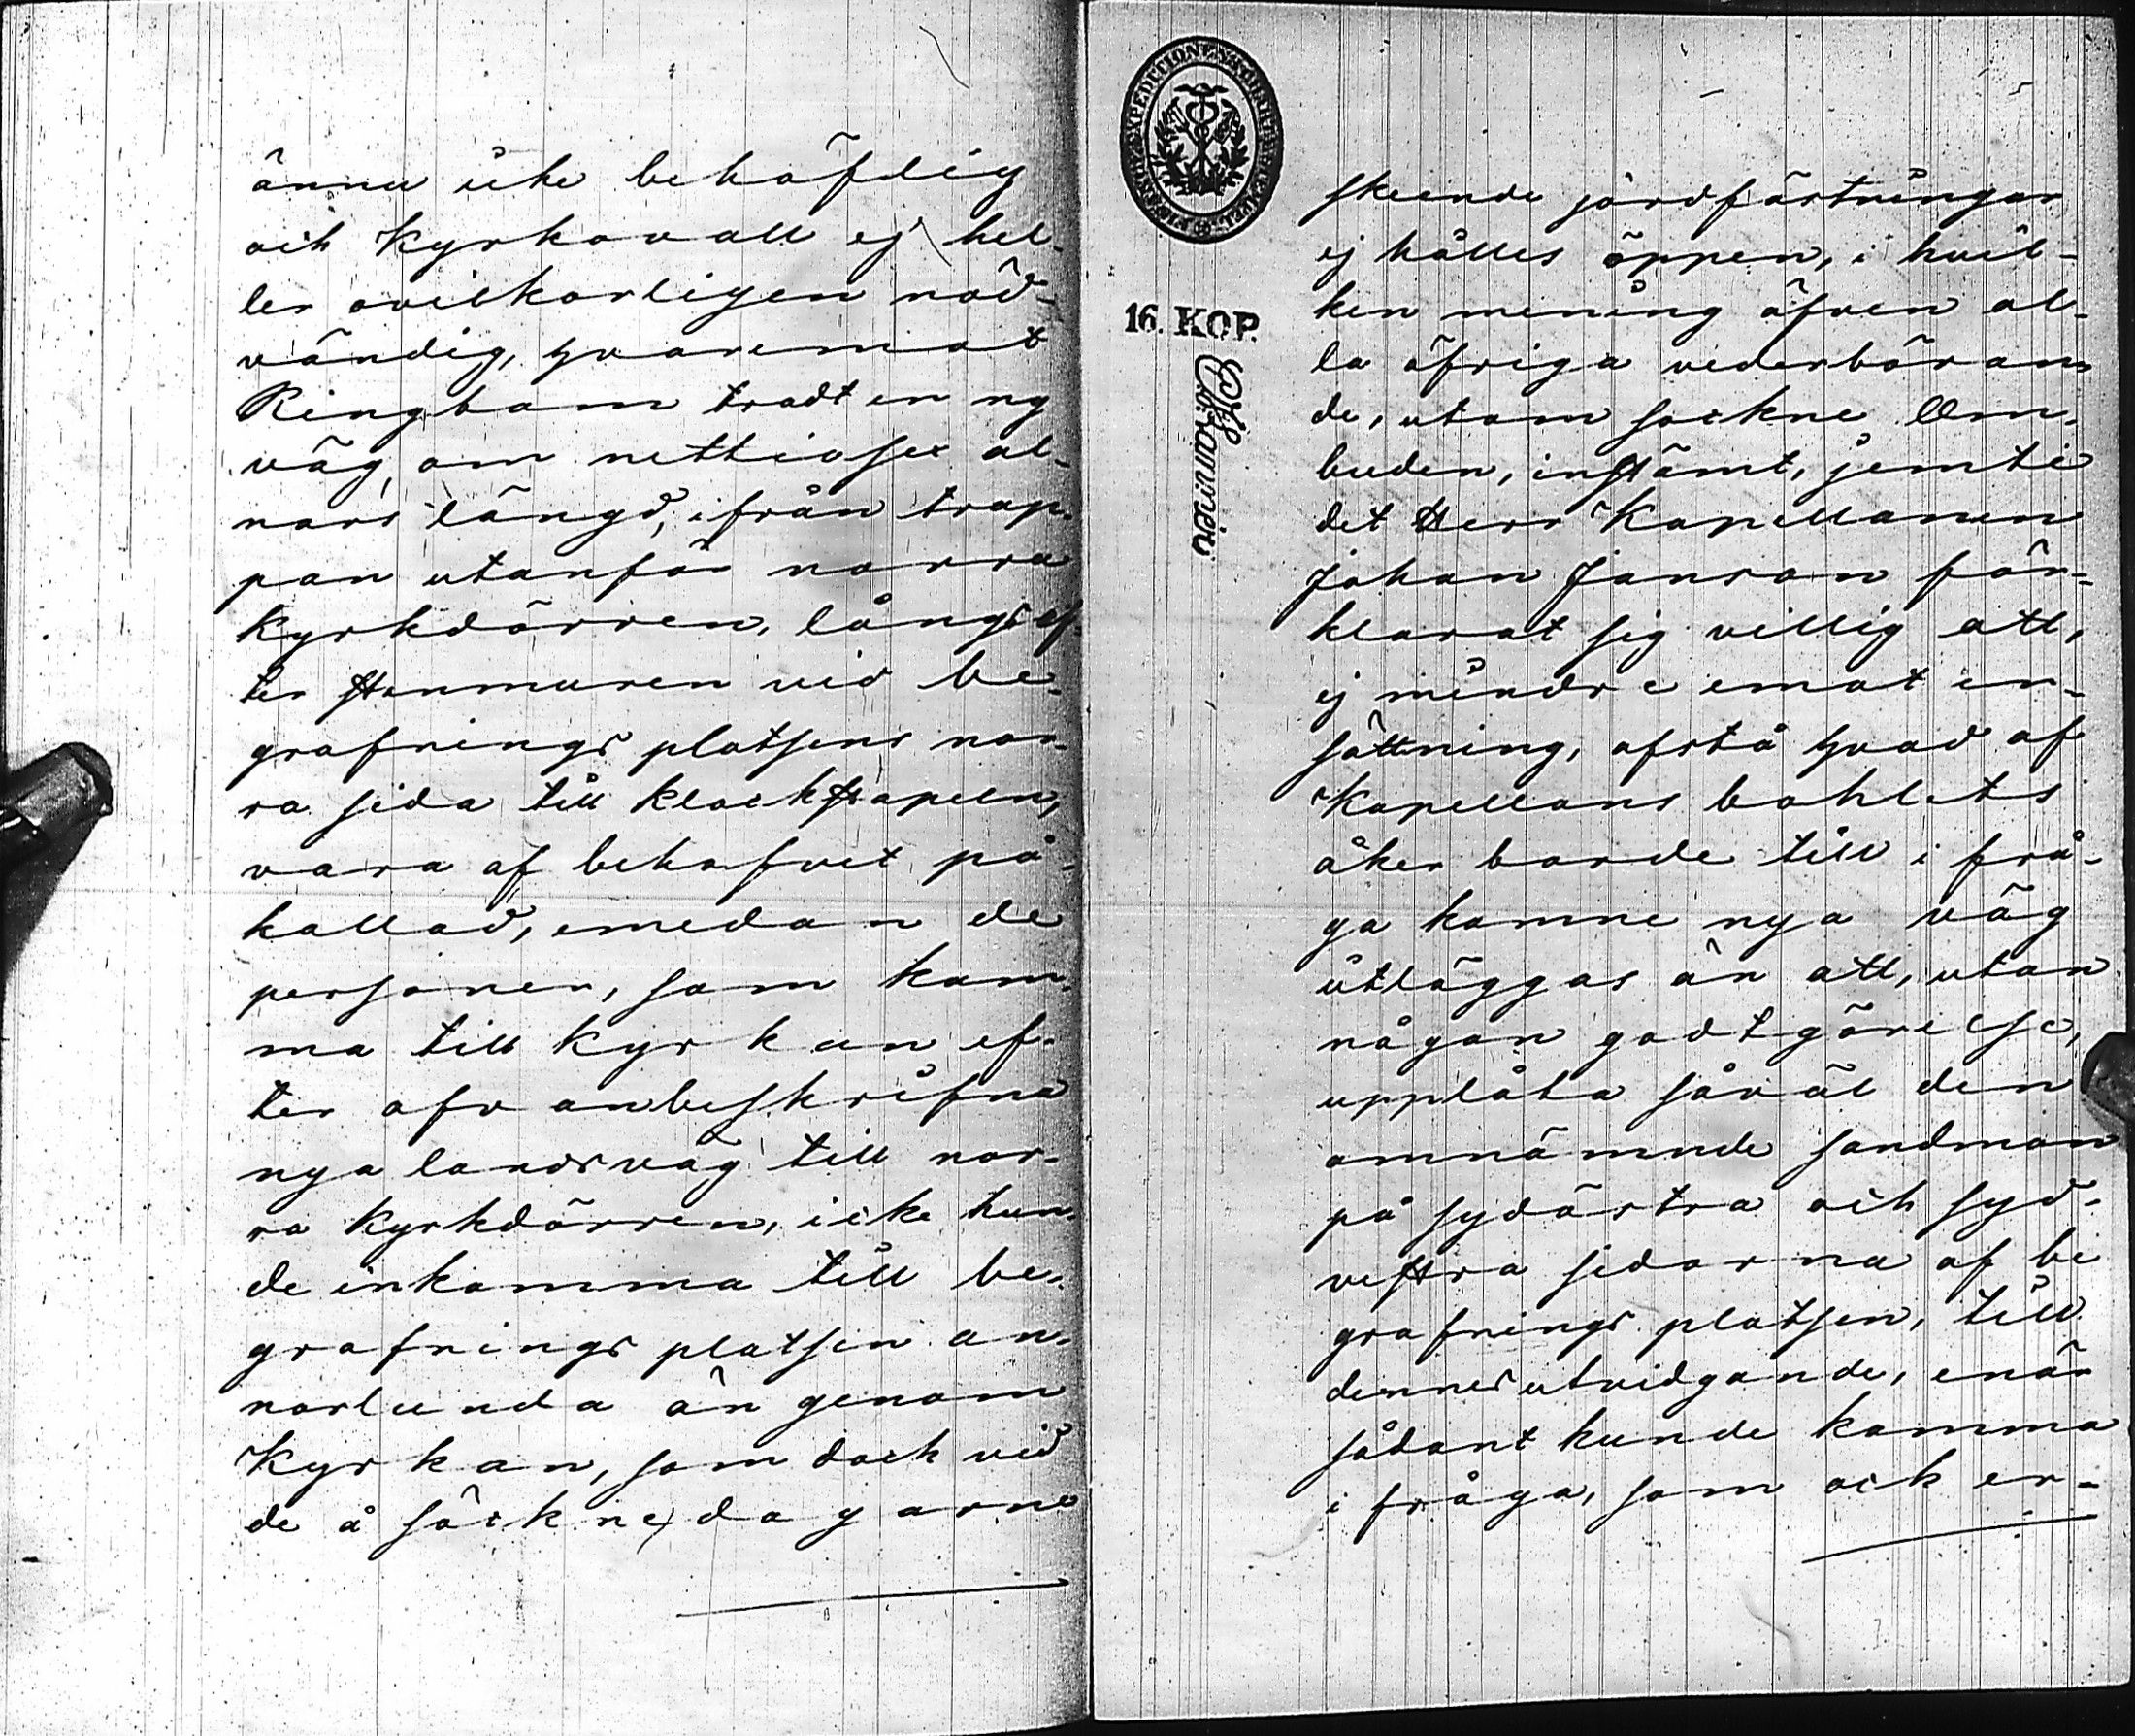 ännu icke behöflig
och Kyrkovall ej hel-
ler ovilkorligen nöd-
vändig, hvaremot
Ringbom trodt en ny
väg, om nettiosex al-
nars längd, ifrån trap-
pan utanför norra
Kyrkdörren, längs ef-
ter stenmuren vid be-
grafnings platsens nor-
ra sida till klockstapeln,
vara af behofvet på-
kallad, emedan de
personer, som kom-
ma till Kyrkan ef-
ter ofvanbeskrifne
nya landsväg till nor-
ra Kyrkdörren, icke kun-
de inkomma till be-
grafnings platsen an-
norlunda än genom
Kyrkan, som dock vid
de å söcknedagarne
16. KOP.
skeende jordfästningar
ej hålles öppen, i hvil-
ken mening äfven al-
la öfriga vederböran-
de, utom sockne Om-
buden, instämt, jemte
det Herr Kapellanen
Johan Janson för-
klarat sig villig att,
ej mindre emot er-
sättning, afstå hvad af
Kapellans bohlets
åker borde till i frå-
ga komne nya väg
utläggas än att, utan
någon godtgörelse,
upplåta såväl den
omnämnde sandmon
på sydöstra och syd-
vestra sidorna af be
grafnings platsen, till
dennes utvidgande, enär
sådant kunde komma
i fråga, som ock er-